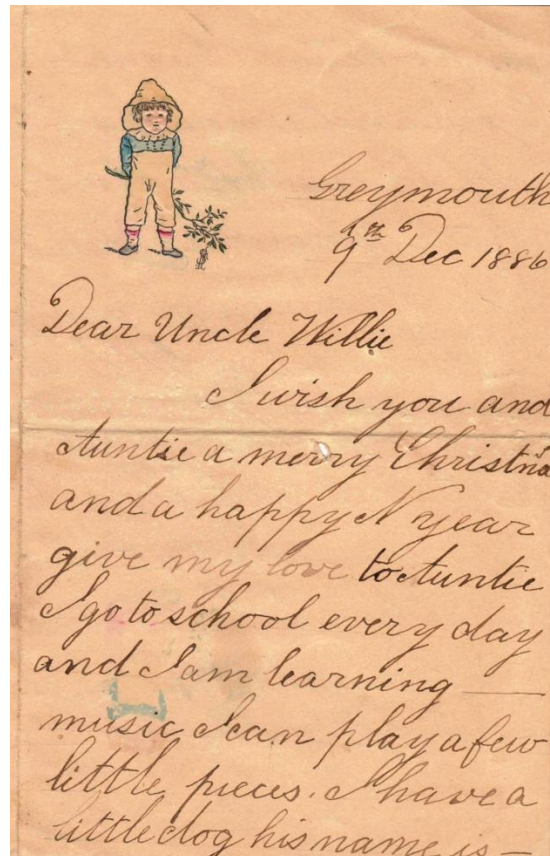 Greymouth
9th Dec 1886
Dear Uncle Willie
I wish you and
Auntie a merry Christma
and a happy N year
give my love to Auntie
I go to school every day
and I am learning —
music I can play a few
little pieces. I have a
little dog his name is —